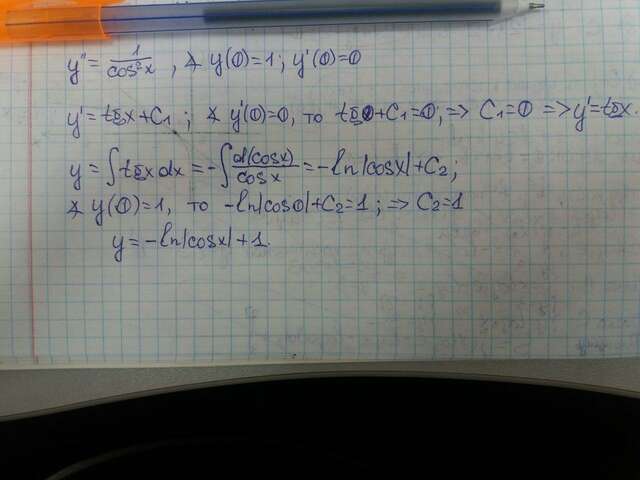 y'' = 1/cos²x , ∡ y(0)=1; y'(0)=0
y' = tgx + C₁ ; ∡ y'(0)=0, то tg0+C₁=0; => C₁=0 => y'=tgx.
y = ∫tgx dx = -∫ d(cosx)/cosx = -ln|cosx| + C₂;
∡ y(0)=1, то -ln|cos0|+C₂=1; => C₂=1
y = -ln|cosx| + 1.